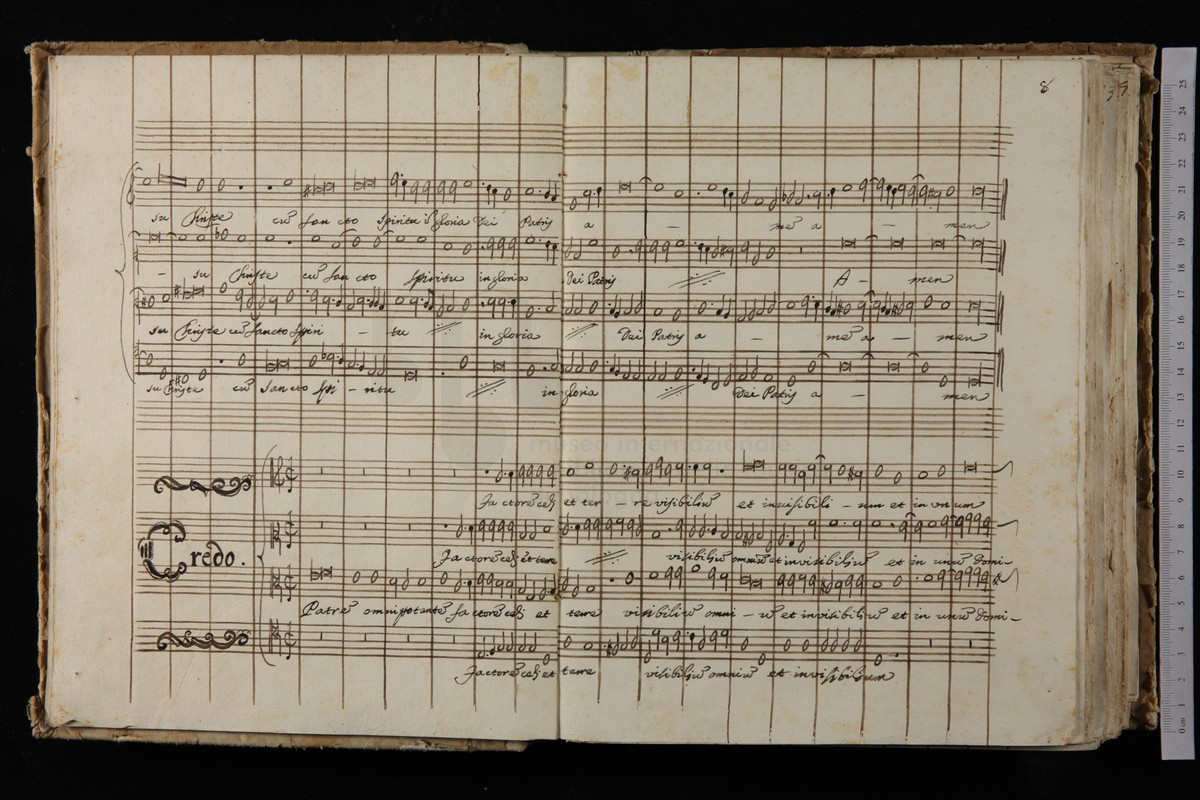 8
35
su Christe cũ san cto spiritu ĩ gloria Dei Patris a — mẽ a — men
— su Christe cũ san cto spiritu in gloria Dei Patris A — men
su Christe cũ sancto spiri — tu in gloria Dei Patris a — mẽ a — men
su Christe cũ sancto spi — ritu in gloria Dei Patris a — men
museo internazionale
factorẽ celi et ter — re visibiliũ et invisibili — um et in vnum
Credo.
factorẽ celi et terre visibiliũ omniũ et invisibiliũ et in unũ domi —
Patrẽ omnipotentẽ factorẽ celi et terre visibiliũ omni — ũ et invisibiliũ et in unũ domi —
factorẽ celi et terre visibiliũ omniũ et invisibilium
0 cm 1 2 3 4 5 6 7 8 9 10 11 12 13 14 15 16 17 18 19 20 21 22 23 24 25